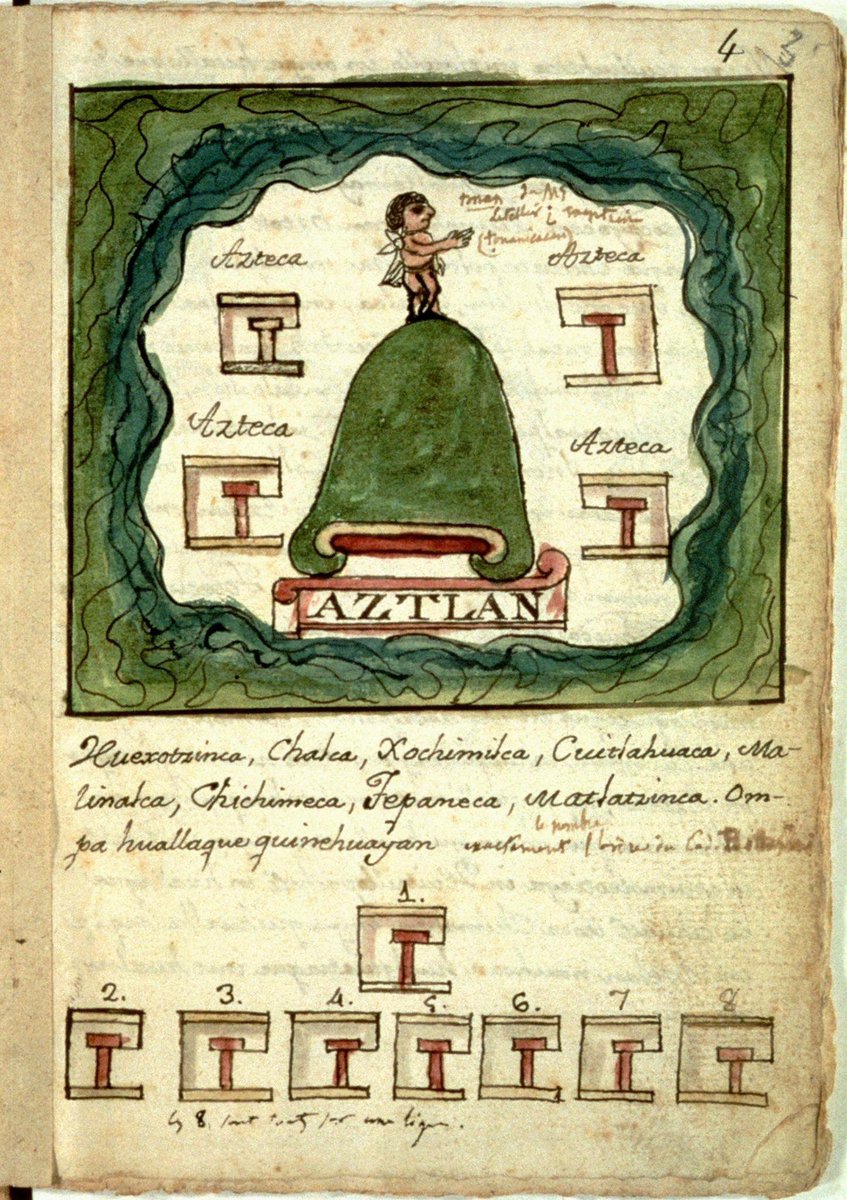 4
Azteca
Azteca
Azteca
Azteca
AZTLAN
Huexotzinca, Chalca, Xochimilca, Cuitlahuaca, Ma-
linalca, Chichimeca, Tepaneca, Matlatzinca. Om-
pa huallaque quinehuayan
1.
2. 3. 4. 5. 6. 7 8
8 sont sur une ligne.